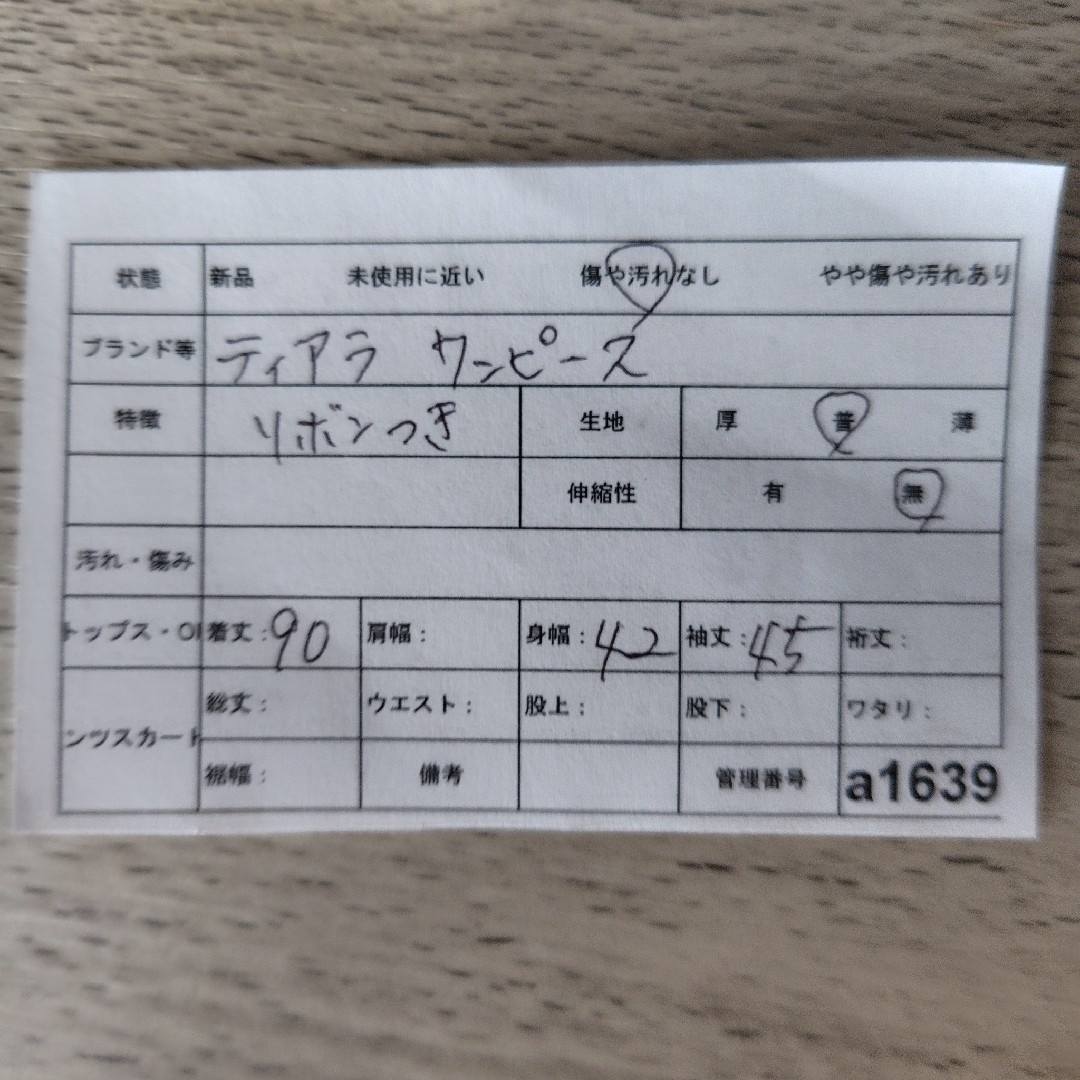 状態 新品 未使用に近い 傷や汚れなし やや傷や汚れあり
ブランド等 ティアラ ワンピース
特徴 リボンつき 生地 厚 普 薄
伸縮性 有 無
汚れ・傷み
トップス・OP 着丈:90 肩幅: 身幅:42 袖丈:45 裄丈:
総丈: ウエスト: 股上: 股下: ワタリ:
ンツスカート
裾幅: 備考 管理番号 a1639